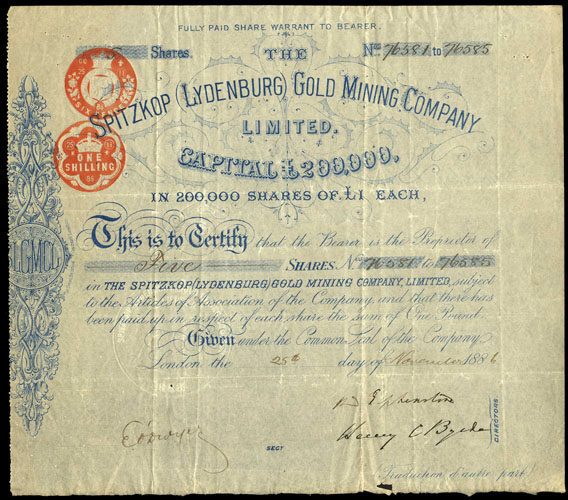 FULLY PAID SHARE WARRANT TO BEARER.
Shares.
Nos 76581 to 76585
THE
SPITZKOP (LYDENBURG) GOLD MINING COMPANY
LIMITED.
CAPITAL £200,000,
IN 200,000 SHARES OF £1 EACH,
ONE
SHILLING
This is to Certify that the Bearer is the Proprietor of
Five SHARES. Nos 76581 to 76585
in THE SPITZKOP (LYDENBURG) GOLD MINING COMPANY, LIMITED, subject
to the Articles of Association of the Company, and that there has
been paid up in respect of each share the sum of One Pound.
Given under the Common Seal of the Company,
London the 25th day of November 1886
DIRECTORS
SECY
Traduction d'autre part